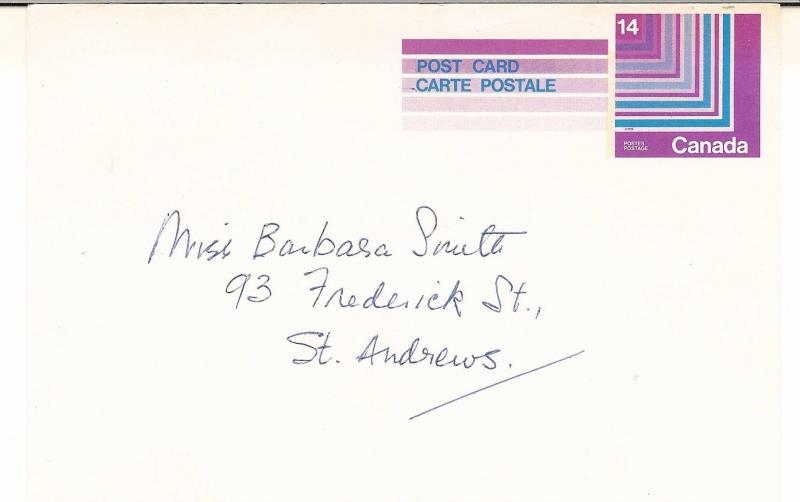 14
POST CARD
CARTE POSTALE
POSTES
POSTAGE
Canada
Miss Barbara Smith
93 Frederick St.,
St. Andrews.